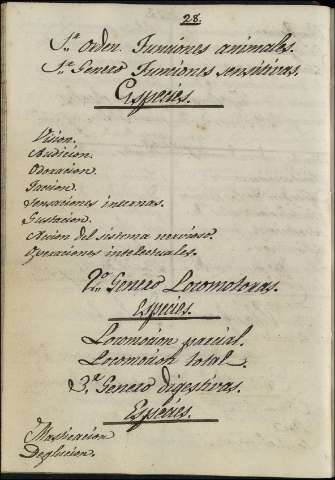 28.
1.ª orden Funciones animales.
1.er Genero Funciones sensitivas.
Especies.
Vision.
Audicion.
Odoracion.
Tacion.
Sensaciones internas.
Gustacion.
Accion del sistema nervioso.
Operaciones intelectuales.
2.º Genero Locomotoras.
Especies.
Locomocion parcial.
Locomocion total.
3.º Genero digestivas.
Especies.
Masticacion
Deglucion.